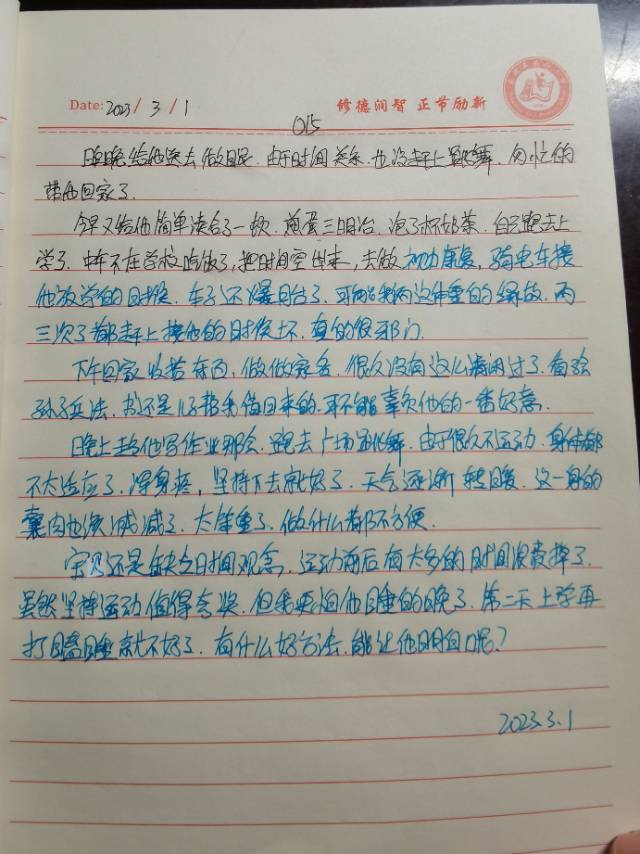 Date: 2023/3/1
修德润智 正节励新
015
昨晚给他送去做眼, 由于时间关系, 也没赶上跳舞, 匆忙的
带他回家了.
今早又给他简单凑合了一顿. 煎蛋三明治, 泡了杯奶茶. 自己跑去上
学了. 中午不在学校吃饭了, 把时间空出来, 去做视功康复, 骑电车接
他放学的时候, 车子还爆胎了. 可能我俩这体重的缘故, 两
三次了都赶上接他的时候坏. 真的很邪门.
下午回家收拾东西, 做做家务. 很久没有这么清闲过了. 看了
孙子兵法, 书还是儿子帮我借回来的. 可不能辜负他的一番好意.
晚上趁他写作业那会. 跑去广场跳舞. 由于很久不运动, 身体都
不太适应了. 浑身疼, 坚持下去就好了. 天气逐渐转暖, 这一身的
囊肉也该减减了. 太笨重了. 做什么都不方便.
宝贝还是缺乏时间观念. 运动前后有太多的时间浪费掉了.
虽然坚持运动值得夸奖. 但我更怕他睡的晚了. 第二天上学再
打瞌睡就不好了. 有什么好方法. 能让他明白呢?
2023.3.1